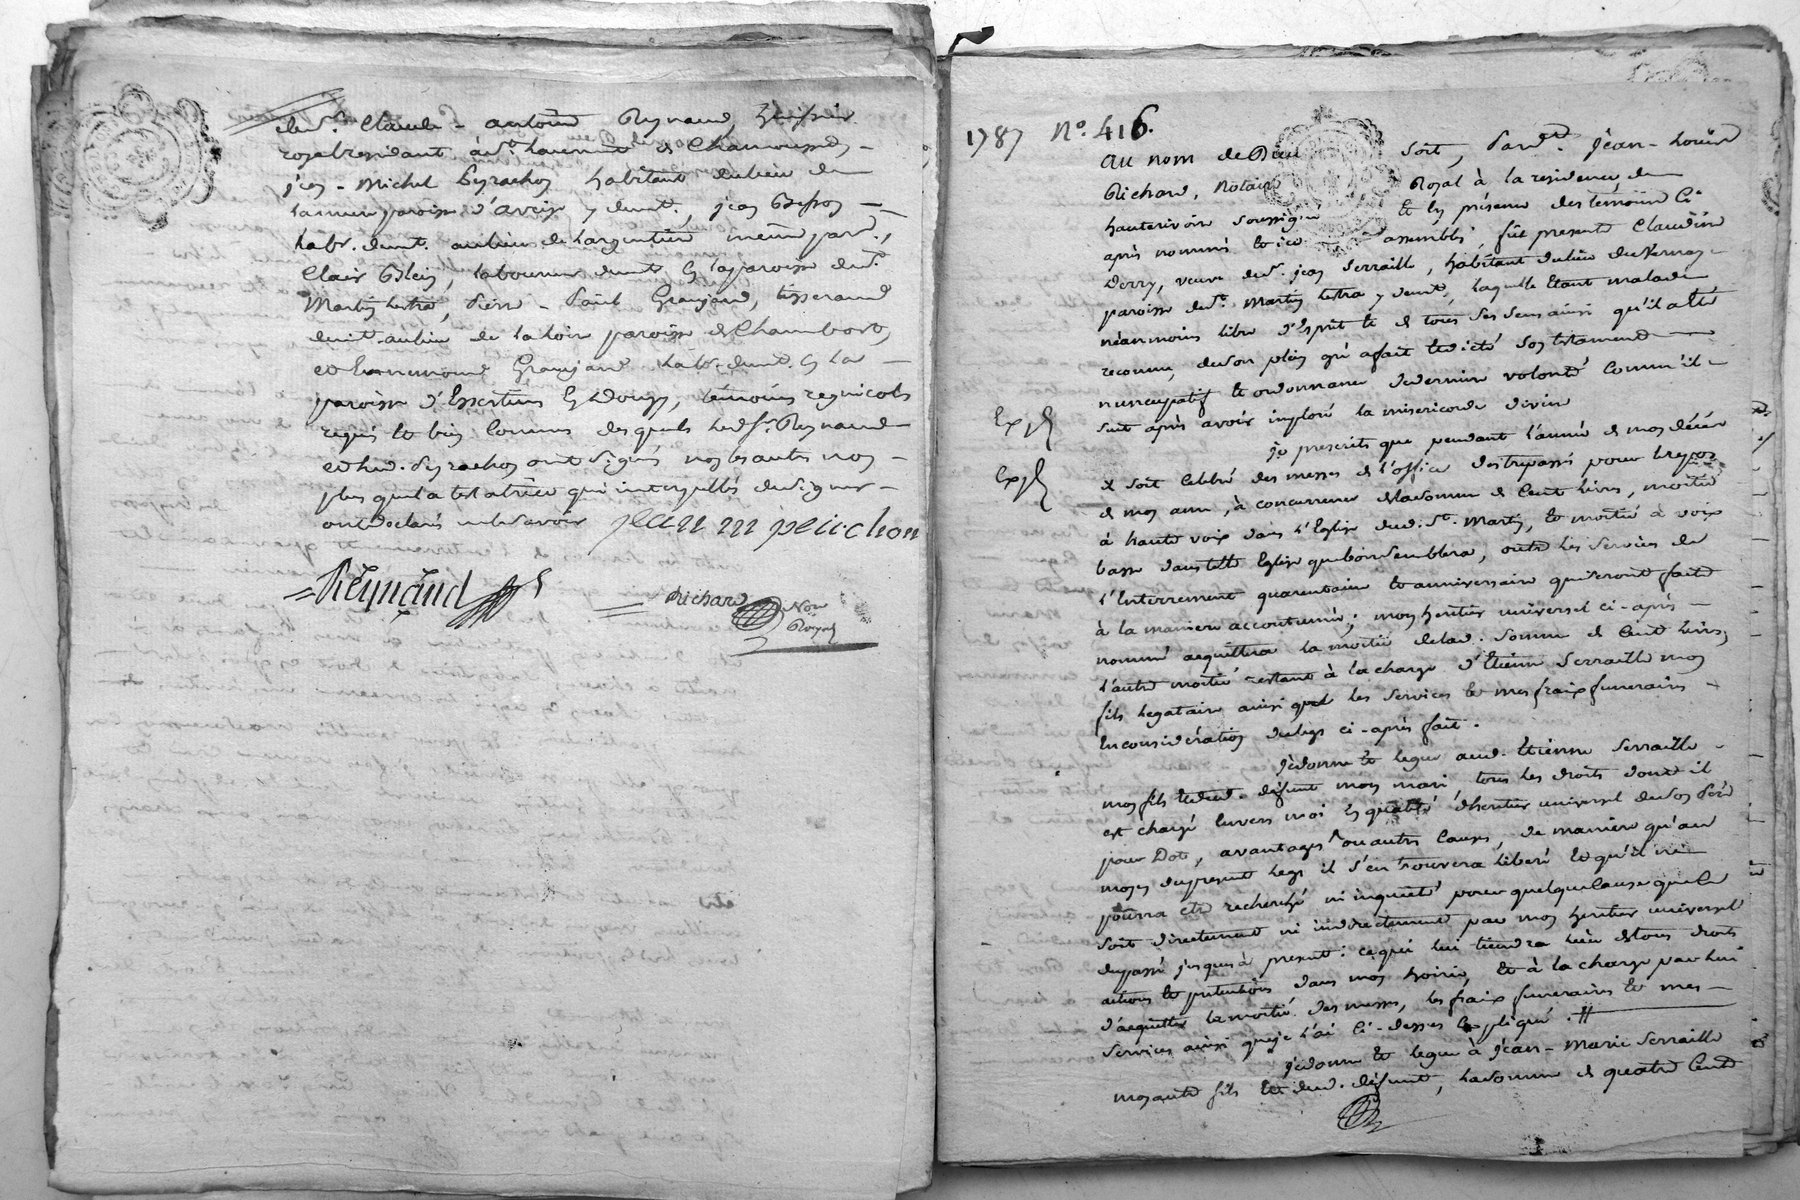 de Sr. Claude - antoine Reynaud, huissier
royal residant à St. Laurent de Chamousset -
jean - Michel Peyrachon habitant du lieu de
la mure paroisse d'aveize y demt., jean Besson -
habt. demt. au lieu de Largentière même par.,
Clair Blein, laboureur demt. en la paroisse de St.
Martin Lestra, Pierre - Paul Granjard, tisserand
demt. au lieu de la Loire paroisse de Chambost,
et Ennemond Granjard habt. demt. en la -
paroisse d'Essertines en Donzy, témoins regnicols
requis et bien connus desquels led. Sr. Reynaud
et led. Peyrachon ont signés non les autres non -
plus que la testatrice qui interpellés de signer -
ont declarés ne le savoir jean m peiichon
Reynaud
Richard Nore
Royal
1787 No. 416.
Au nom de Dieu soit, Pardt. Jean - Louis
Richard, Notaire Royal à la residence de
hauterivoire soussigné et en présence des temoins ci
après nommés et ici assemblés, fut presente Claudine
Derry, veuve de Sr. jean Serraille, habitant du lieu du Vernay -
paroisse de St. Martin Lestra y demt., laquelle etant malade
néanmoins libre d'esprit et de tous ses sens ainsi qu'il a été
reconnu, de son plein gré a fait et dicté son testament
nuncupatif et ordonnance de derniere volonté comm'il -
suit après avoir imploré la misericorde divine
Exp.
je prescrits que pendant l'année de mon décés
Exp.
il soit celebré des messes de l'office des trepassés pour le repos
de mon ame, à concurrence de la somme de cent livres, moitié
à haute voix dans l'Eglise dud. St. Martin, et moitié à voix
basse dans telle Eglise que bon semblera, outre les services de
l'Enterrement quarentaine et anniversaire qui seront faits
à la maniere accoutumée; mon heritier universel ci - après -
nommé acquittera la moitié de lad. somme de cent livres,
l'autre moitié restant à la charge d'Etienne Serraille mon
fils legataire ainsi que les services et mes fraix funeraires -
En considération du legs ci - après fait.
Je donne et legue aud. Etienne Serraille -
mon fils et dud. défunt mon mari tous les droits dont il
est chargé Envers moi En qualité d'heritier universel de son pere
pour Dot, avantages ou autres causes, de maniere qu'au
moyen du present legs il s'en trouvera liberé et qu'il ne
pourra etre recherché ni inquieté pour quelque cause que ce
soit directement ni indirectement par mon heritier universel
du passé jusques à present: ce qui lui tiendra lieu de tous droits
actions et pretentions dans mon hoirie, et à la charge par lui
d'acquitter la moitié des messes, les fraix funeraires et mes -
services ainsi que je l'ai ci - dessus Expliqué. //
Je donne et legue à Jean - Marie Serraille
mon autre fils et dud. défunt, la somme de quatre cent